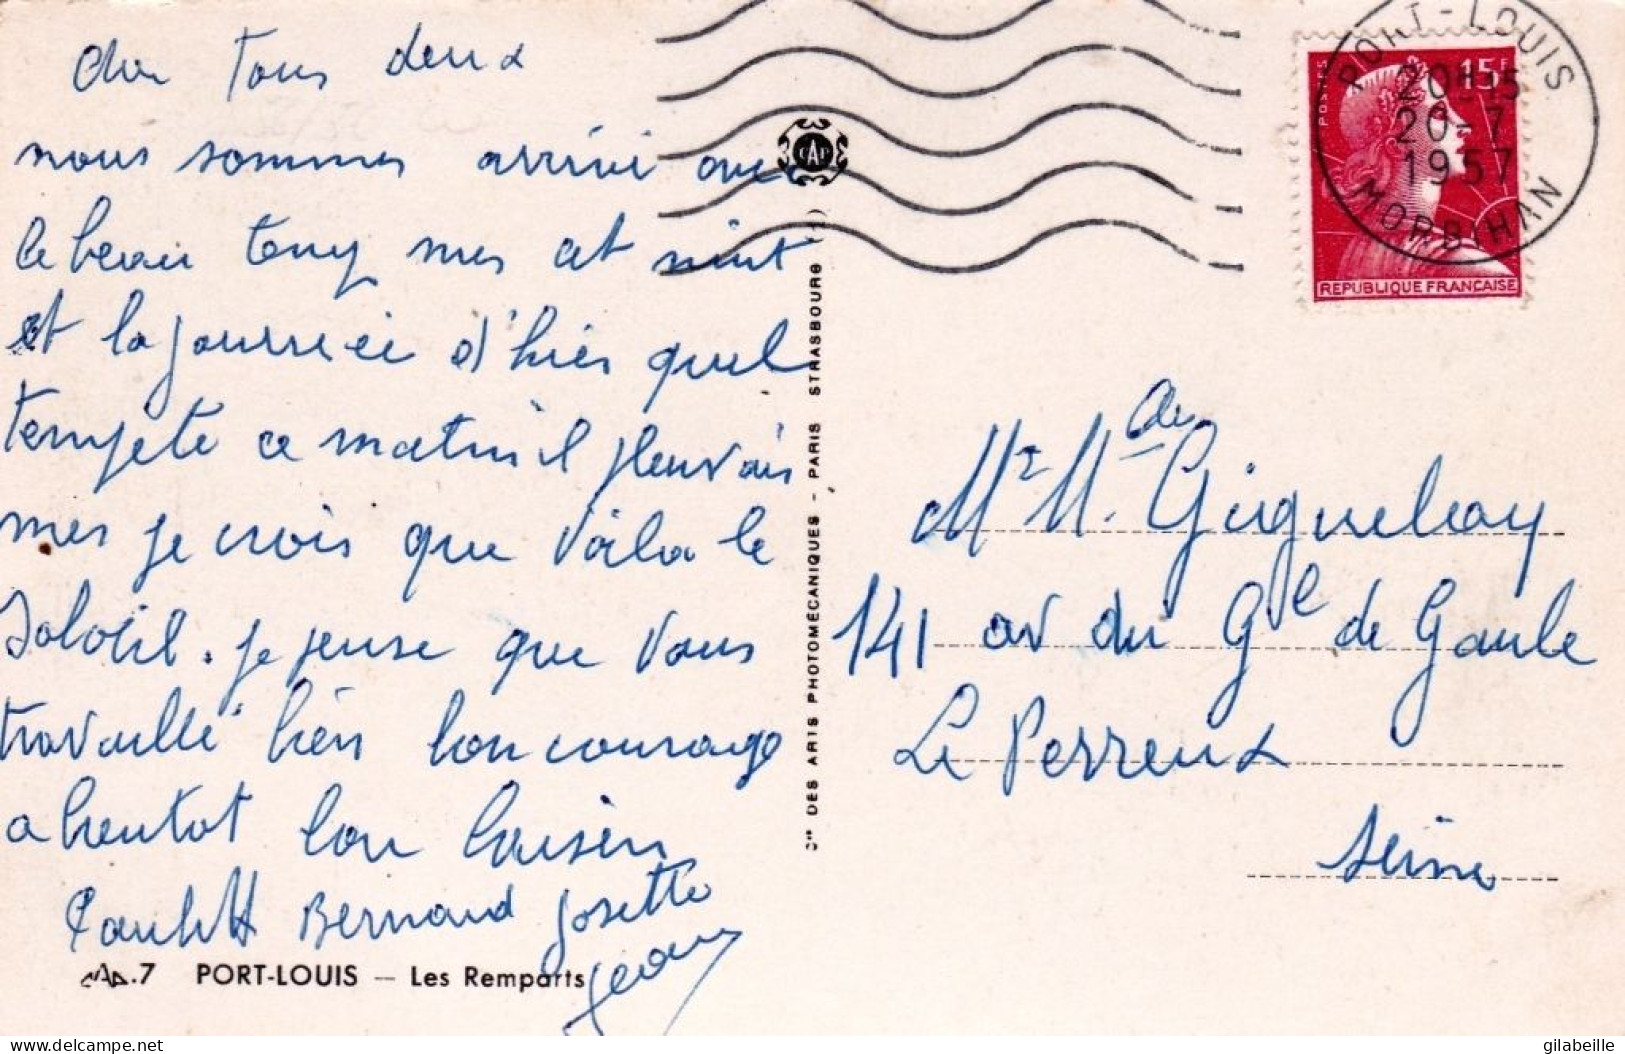 cher tous deux
nous sommes arrivé avec
le beau temp mes cet nuit
et la journéé d'hièr quel
tempete ce matin il pleuvais
mes je crois que voila le
Soloeil. je pense que vous
travaillé bièn bon courage
a bientot bon baisèr
Paulette Bernard Josette
Jean
CAP.7 PORT-LOUIS — Les Remparts
Cie DES ARTS PHOTOMÉCANIQUES - PARIS STRASBOURG
CAP
PORT-LOUIS
20H15
20-7
1957
MORBIHAN
POSTES
15F
REPUBLIQUE FRANCAISE
Mr Mde
141 av du Gle de Gaule
Le Perreux
Seine
delcampe.net
gilabeille